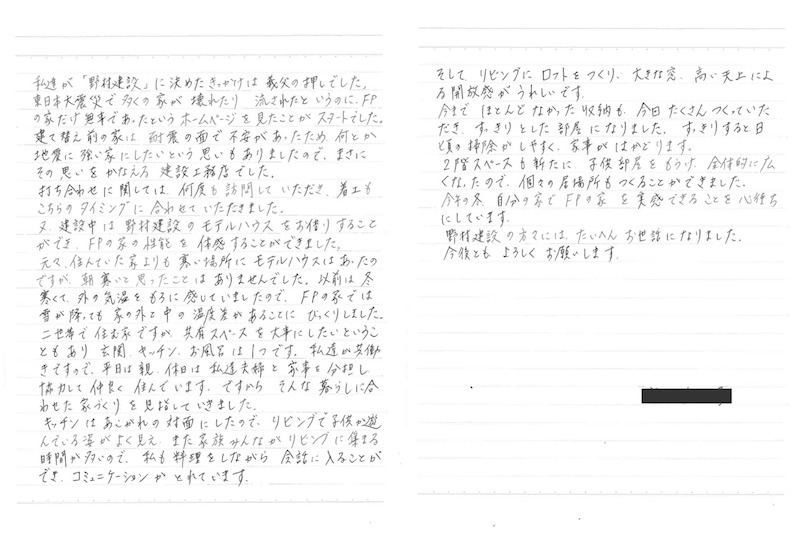 私達が「野村建設」に決めたきっかけは 義父の押しでした。
東日本大震災で多くの家が 壊れたり 流されたというのに、FP
の家だけ無事であったというホームページを見たことがスタートでした。
建て替え前の家は 耐震の面で不安があったため 何とか
地震に強い家にしたいという思いもありましたので、まさに
その思いをかなえる 建設工務店でした。
打ち合わせに関しては、何度も訪問していただき、着工も
こちらのタイミングに合わせていただきました。
又、建設中は 野村建設のモデルハウスをお借りすること
ができ、FPの家の性能を体感することができました。
元々、住んでいた家よりも寒い場所にモデルハウスはあったの
ですが、朝寒いと思ったことは ありませんでした。以前は 冬
寒くて、外の気温をもろに感じていましたので、FPの家では
雪が降っても家の外と中の温度差があることに びっくりしました。
二世帯で住む家ですが、共有スペースを大事にしたいというこ
ともあり 玄関、キッチン、お風呂は1つです。私達が共働
きですので、平日は親、休日は私達夫婦と 家事を分担し
協力して仲良く住んでいます。ですから そんな暮らしに合
わせた家づくりを目指していきました。
キッチンはあこがれの対面にしたので、リビングで子供が遊
んでいる姿がよく見え、また家族みんながリビングに集まる
時間が多いので、私も料理をしながら 会話に入ることが
でき、コミュニケーションがとれています。
そして、リビングにロフトをつくり、大きな窓、高い天上によ
る開放感がうれしいです。
今まで ほとんどなかった収納も、今回たくさんつくっていた
だき、すっきりとした部屋になりました。すっきりすると日
々の掃除がしやすく、家事がはかどります。
2階スペースも新たに 子供部屋をもうけ、全体的に広
くなったので、個々の居場所もつくることができました。
今年の冬、自分の家でFPの家を実感できることを心待ち
にしています。
野村建設の方々には、たいへんお世話になりました。
今後とも よろしくお願いします。